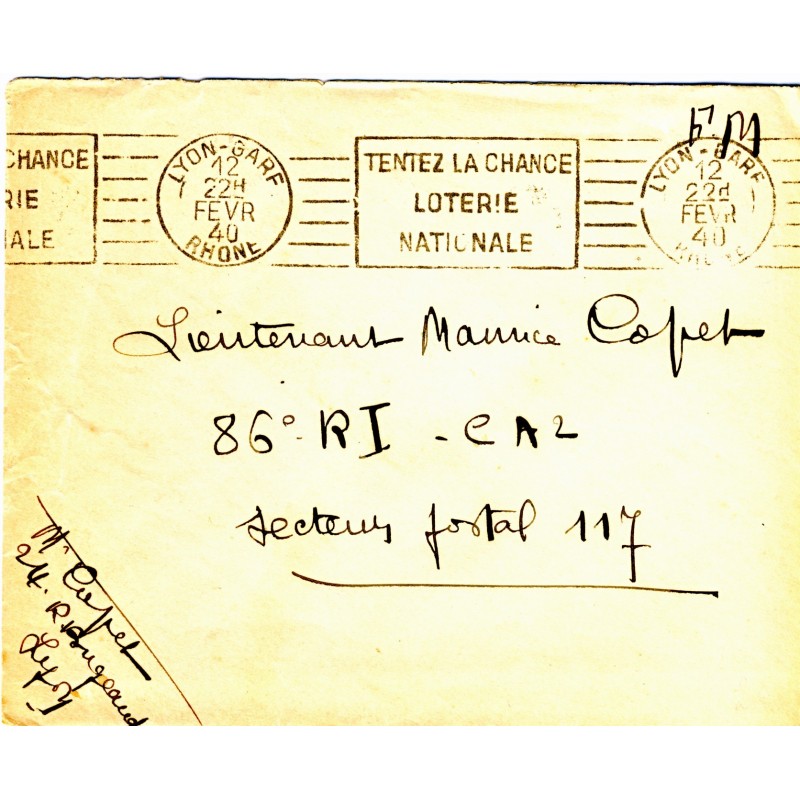 F M
CHANCE
RIE
NALE
LYON-GARE
12
22H
FEVR
40
RHONE
TENTEZ LA CHANCE
LOTERIE
NATIONALE
LYON-GARE
12
22H
FEVR
40
RHONE
Lieutenant Maurice Copet
86e RI - CA2
secteur postal 117
Mr Copet
24. R Bugeaud
Lyon